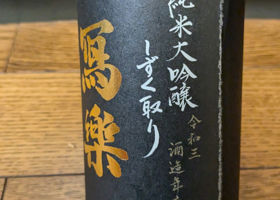 純米大吟醸
しずく取り
令和三
酒造年
寫樂